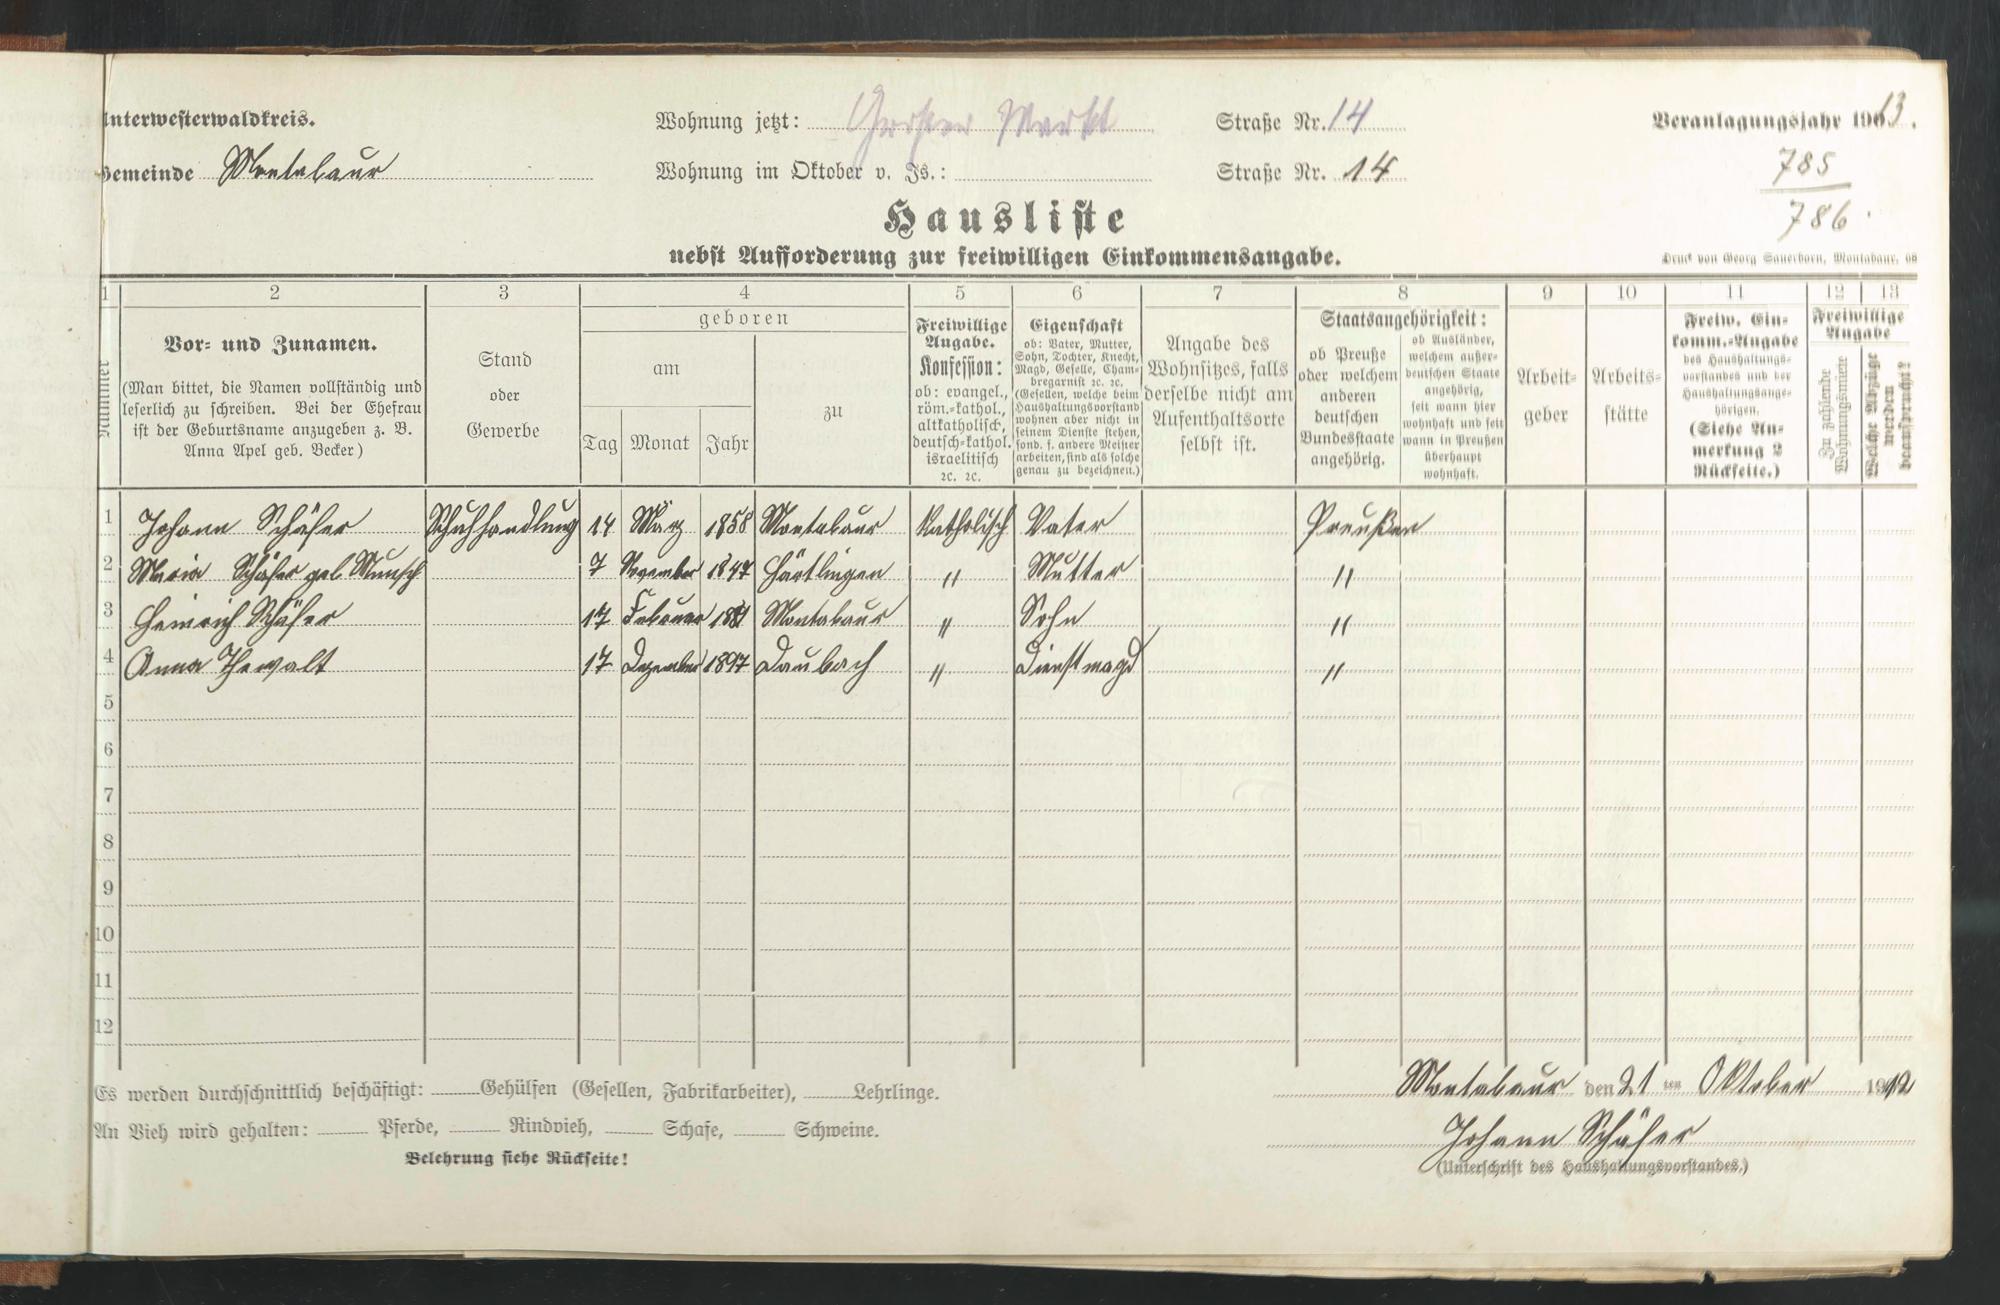 Unterwesterwaldkreis.
Gemeinde Montabaur
Wohnung jetzt: Großer Markt Straße Nr. 14
Wohnung im Oktober v. Js.: Straße Nr. 14
Veranlagungsjahr 1913.
785
786.
Hausliste
nebst Aufforderung zur freiwilligen Einkommensangabe.
Druck von Georg Sauerborn, Montabaur, 08
1 2 3 4 5 6 7 8 9 10 11 12 13
Nummer
Vor- und Zunamen.
(Man bittet, die Namen vollständig und
leserlich zu schreiben. Bei der Ehefrau
ist der Geburtsname anzugeben z. B.
Anna Apel geb. Becker)
Stand
oder
Gewerbe
geboren
am
Tag Monat Jahr
zu
Freiwillige
Angabe.
Konfession:
ob: evangel.,
röm.-kathol.,
altkatholisch,
deutsch-kathol.
israelitisch
ꝛc. ꝛc.
Eigenschaft
ob: Vater, Mutter,
Sohn, Tochter, Knecht,
Magd, Geselle, Cham-
bregarnist ꝛc. ꝛc.
(Gesellen, welche beim
Haushaltungsvorstand
wohnen aber nicht in
seinem Dienste stehen,
sond. f. andere Meister
arbeiten, sind als solche
genau zu bezeichnen.)
Angabe des
Wohnsitzes, falls
derselbe nicht am
Aufenthaltsorte
selbst ist.
Staatsangehörigkeit:
ob Preuße
oder welchem
anderen
deutschen
Bundesstaate
angehörig.
ob Ausländer,
welchem außer-
deutschen Staate
angehörig,
seit wann hier
wohnhaft und seit
wann in Preußen
überhaupt
wohnhaft.
Arbeit-
geber
Arbeits-
stätte
Freiw. Ein-
komm.-Angabe
des Haushaltungs-
vorstandes und der
Haushaltungsange-
hörigen.
(Siehe An-
merkung 2
Rückseite.)
Freiwillige
Angabe
Zu zahlende
Wohnungsmiete
Welche Abzüge
werden
beansprucht?
1 Johann Schäfer Schuhhandlung 14 März 1858 Montabaur Katholisch Vater Preußen
2 Maria Schäfer geb. Munsch 7 November 1847 Härtlingen " Mutter "
3 Heinrich Schäfer 17 Februar 1881 Montabaur " Sohn "
4 Anna Thewalt 17 Dezember 1897 Daubach " Dienstmagd "
5
6
7
8
9
10
11
12
Es werden durchschnittlich beschäftigt: Gehülfen (Gesellen, Fabrikarbeiter), Lehrlinge.
An Vieh wird gehalten: Pferde, Rindvieh, Schafe, Schweine.
Belehrung siehe Rückseite!
Montabaur den 21ten Oktober 1912
Johann Schäfer
(Unterschrift des Haushaltungsvorstandes.)